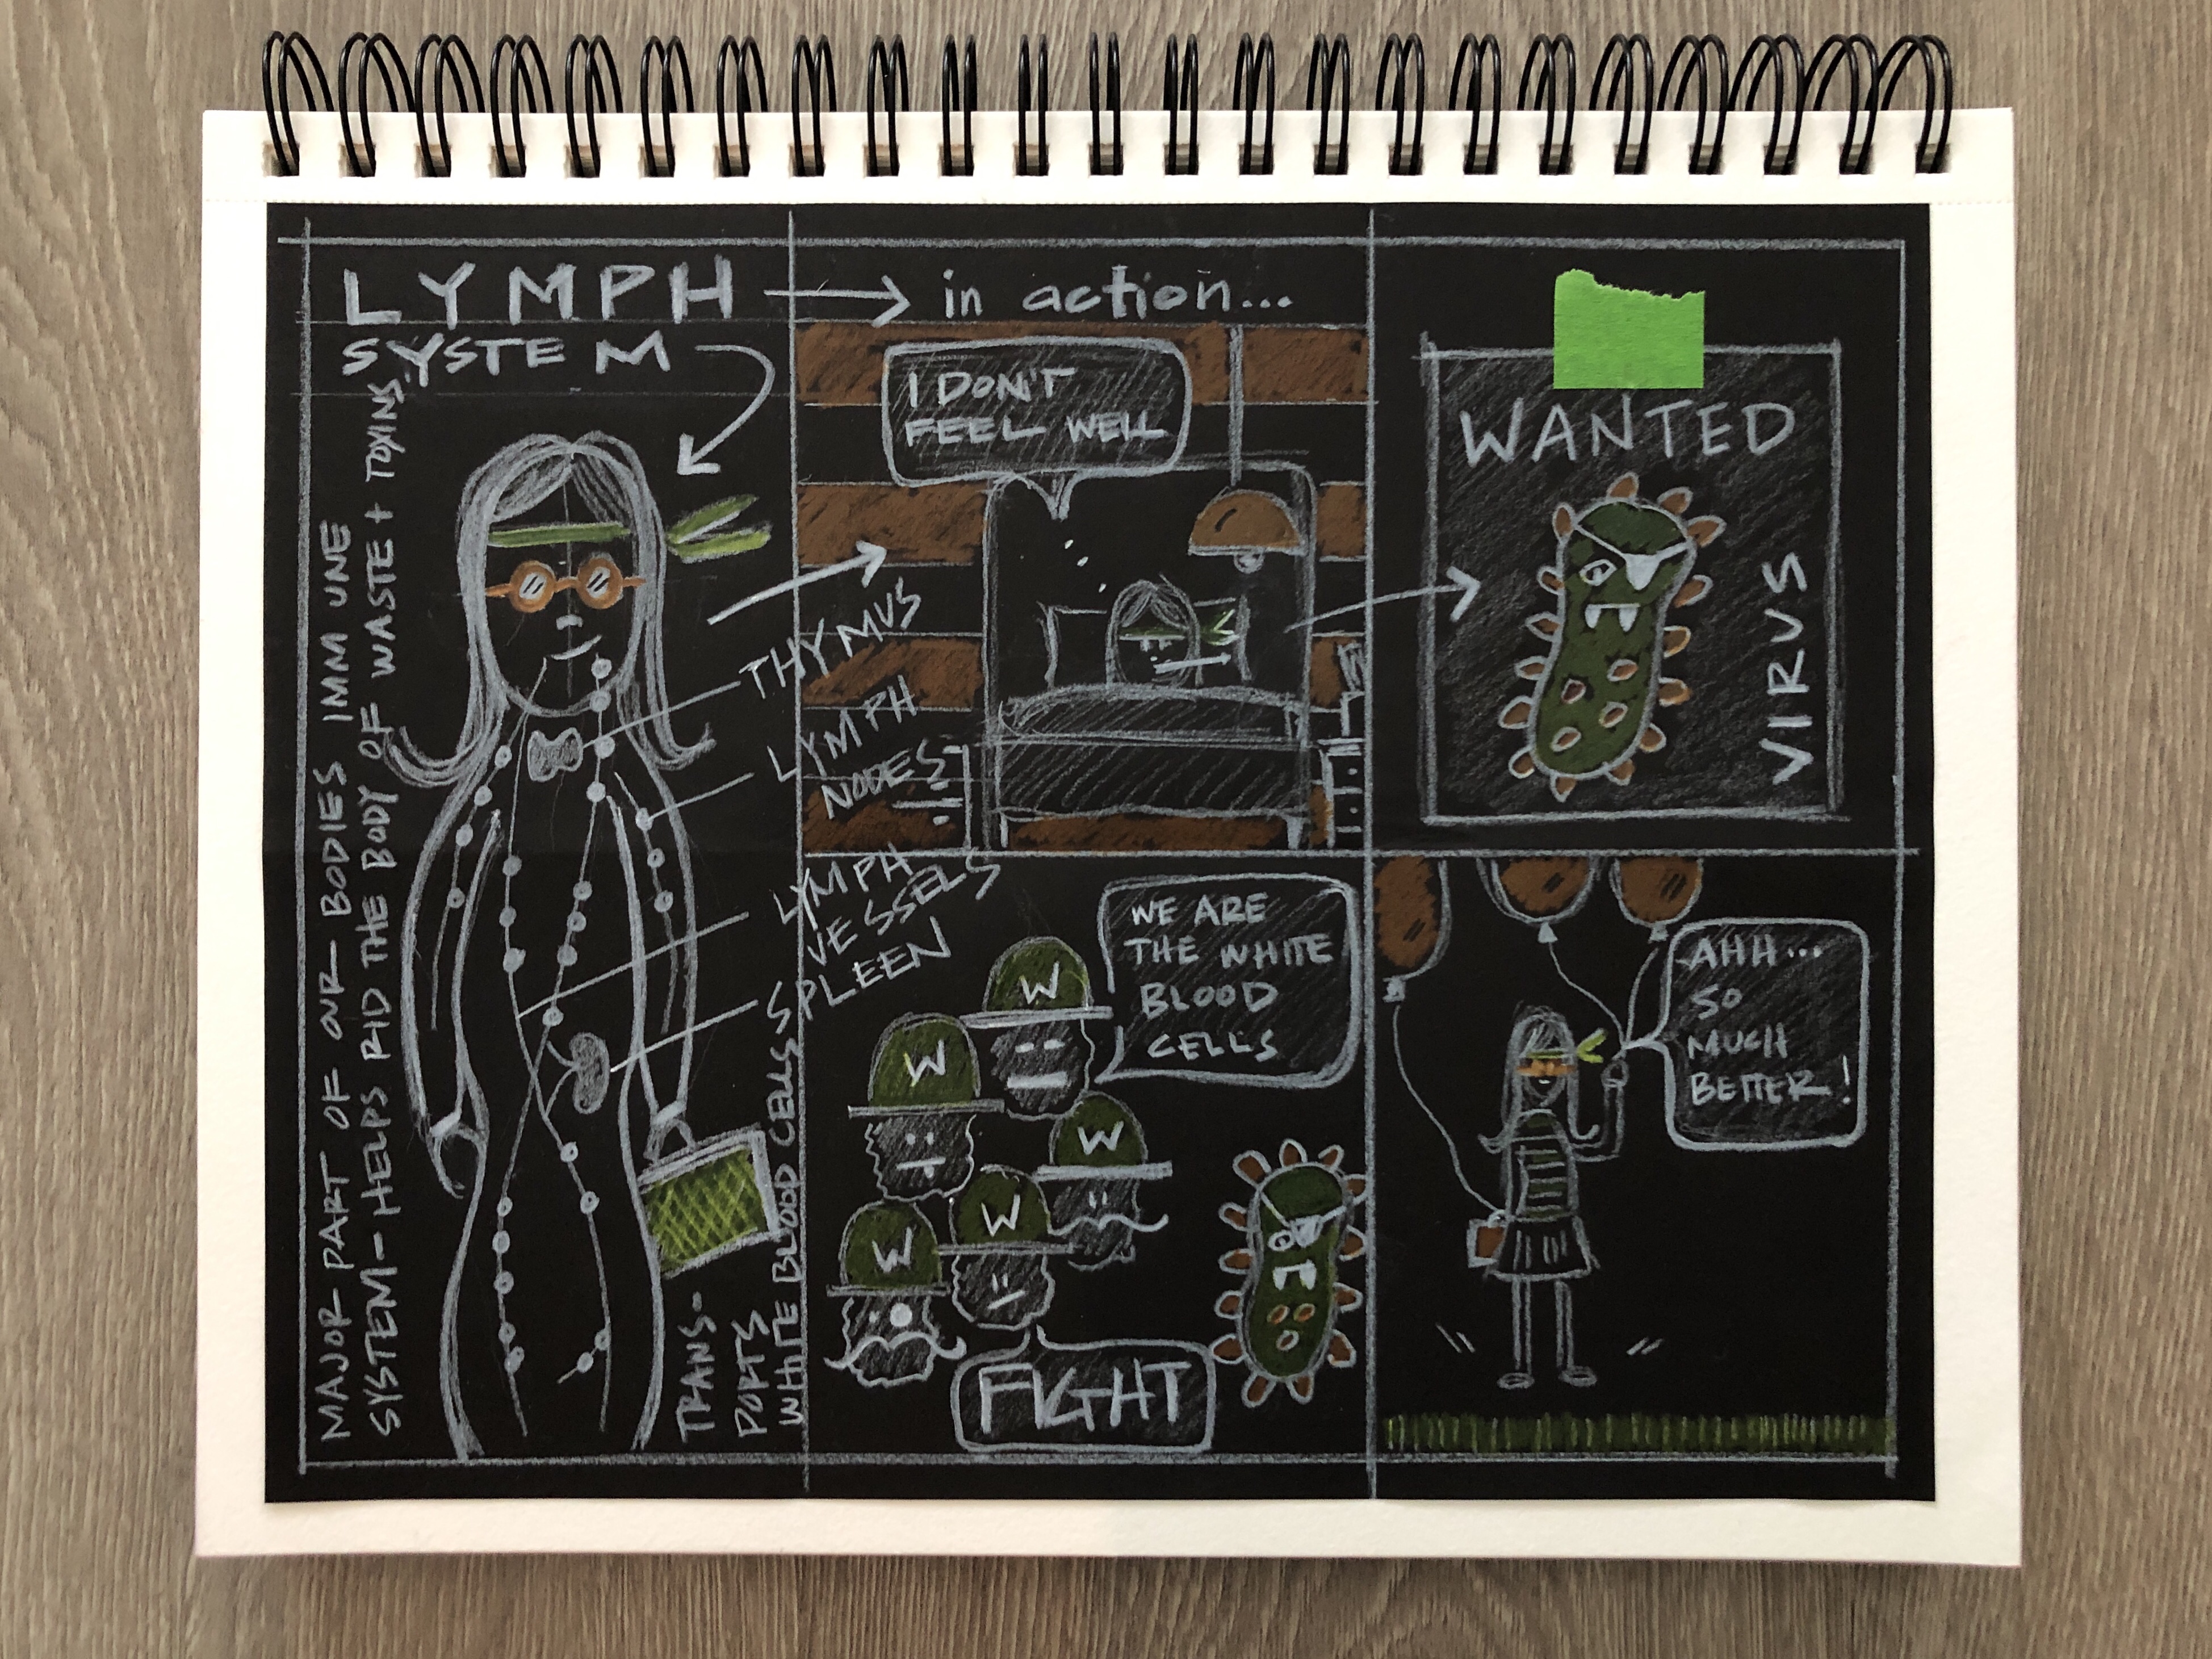 LYMPH
SYSTEM
MAJOR PART OF OUR BODIES IMMUNE
SYSTEM - HELPS RID THE BODY OF WASTE + TOXINS.
THYMUS
LYMPH
NODES
LYMPH
VESSELS
SPLEEN
TRANS-
PORTS
WHITE BLOOD CELLS
in action...
I DON'T
FEEL WELL
WANTED
VIRUS
WE ARE
THE WHITE
BLOOD
CELLS
W
W
W
W
W
FIGHT
AHH...
SO
MUCH
BETTER!